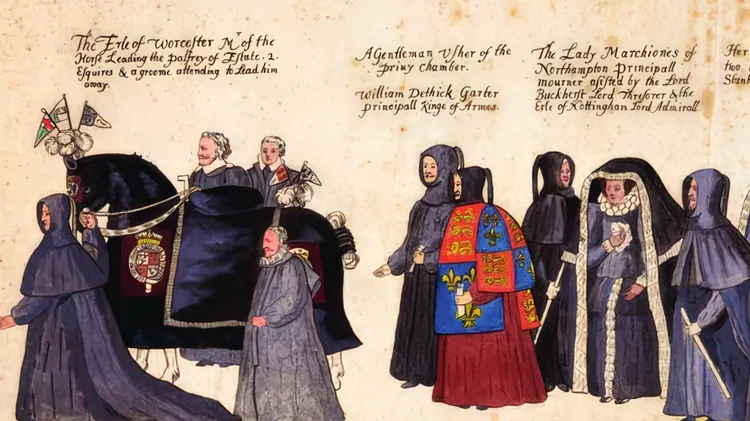 The Erle of Worcester Mr of the
Horse Leading the palfrey of Estate. 2.
Esquires & a groome attending to Lead him
away.
A Gentleman Vsher of the
priuy chamber.
William Dethick Garter
principall Kinge of Armes.
The Lady Marchiones of
Northampton Principall
mourner assisted by the Lord
Buckherst Lord Thresorer & the
Erle of Nottinghan Lord Admirall
Her
two